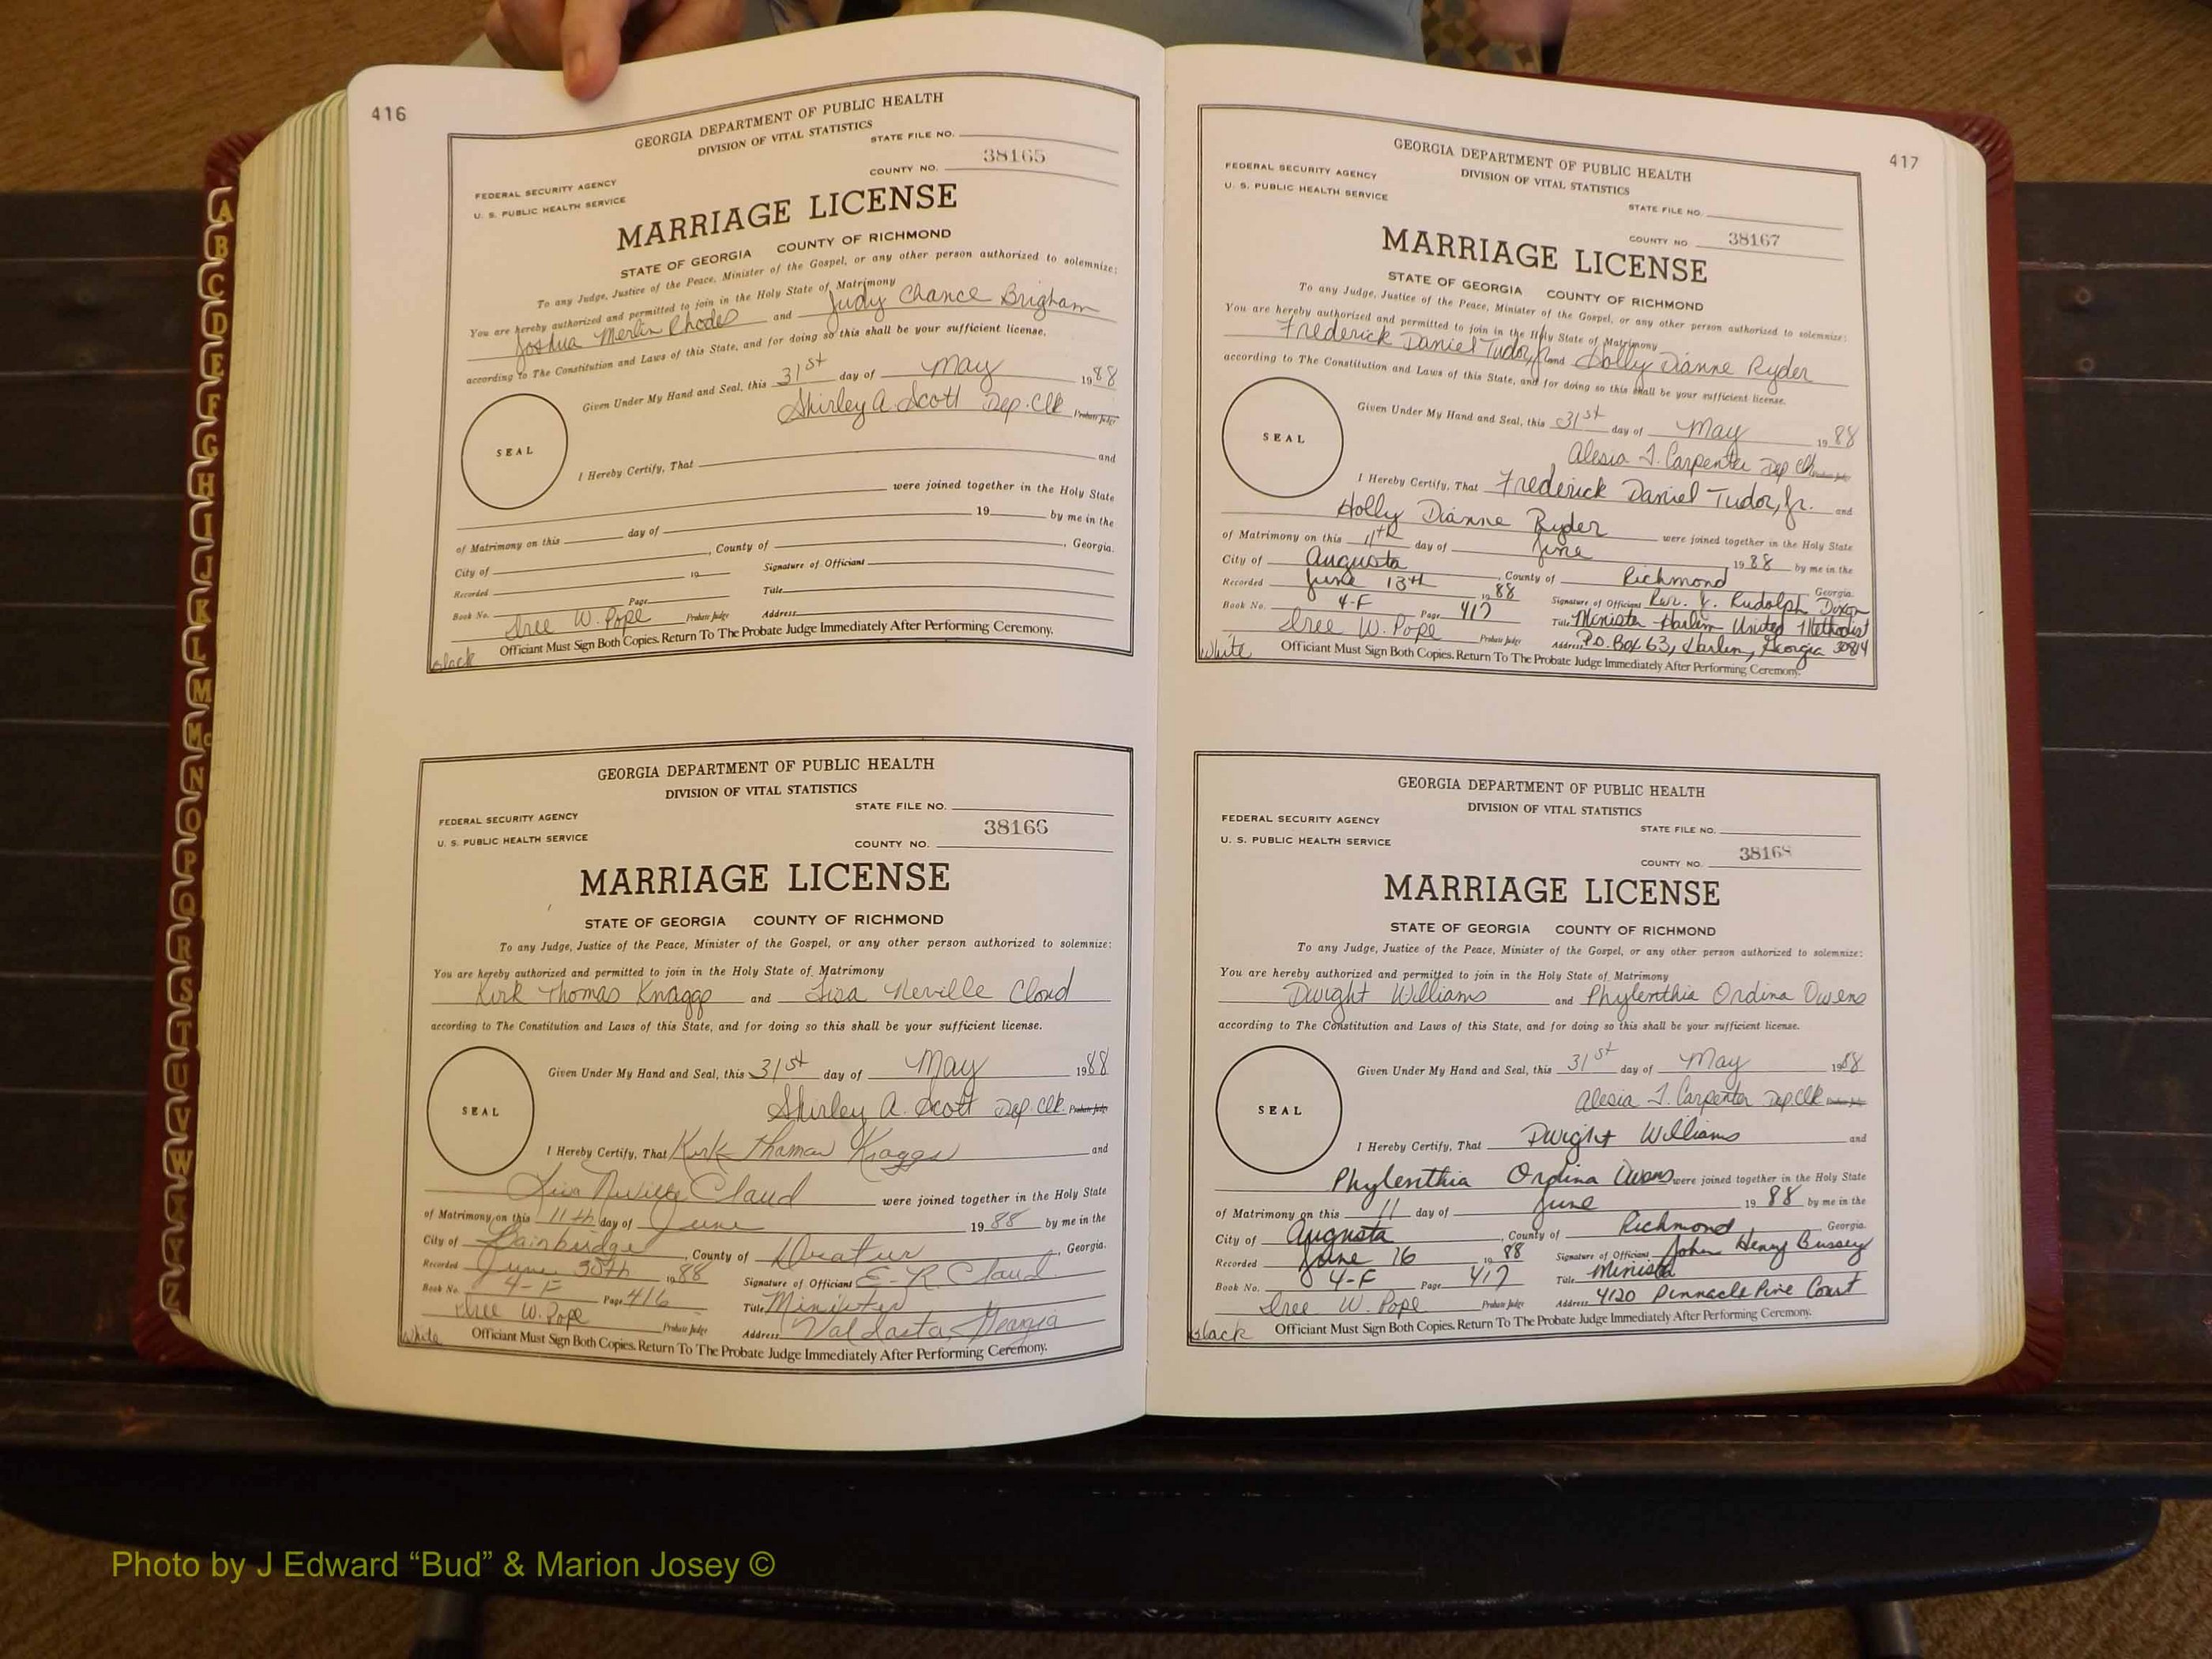 416
GEORGIA DEPARTMENT OF PUBLIC HEALTH
DIVISION OF VITAL STATISTICS
STATE FILE NO.
38165
COUNTY NO.
FEDERAL SECURITY AGENCY
U. S. PUBLIC HEALTH SERVICE
MARRIAGE LICENSE
STATE OF GEORGIA COUNTY OF RICHMOND
To any Judge, Justice of the Peace, Minister of the Gospel, or any other person authorized to solemnize:
You are hereby authorized and permitted to join in the Holy State of Matrimony
Joshua Merlin Rhodes and Judy Chance Brigham
according to The Constitution and Laws of this State, and for doing so this shall be your sufficient license.
Given Under My Hand and Seal, this 31st day of May 1988
Shirley A. Scott Dep. Clk Probate Judge
SEAL
I Hereby Certify, That and
were joined together in the Holy State
of Matrimony on this day of 19 by me in the
City of , County of , Georgia.
Recorded 19 Signature of Officiant
Book No. Page Title
W. Pope Probate Judge Address
Officiant Must Sign Both Copies. Return To The Probate Judge Immediately After Performing Ceremony.
Black
GEORGIA DEPARTMENT OF PUBLIC HEALTH
DIVISION OF VITAL STATISTICS
STATE FILE NO.
FEDERAL SECURITY AGENCY
38166
U. S. PUBLIC HEALTH SERVICE
COUNTY NO.
MARRIAGE LICENSE
STATE OF GEORGIA COUNTY OF RICHMOND
To any Judge, Justice of the Peace, Minister of the Gospel, or any other person authorized to solemnize:
You are hereby authorized and permitted to join in the Holy State of Matrimony
Kirk Thomas Knaggs and Lisa Neville Cloud
according to The Constitution and Laws of this State, and for doing so this shall be your sufficient license.
Given Under My Hand and Seal, this 31st day of May 1988
Shirley A. Scott Dep. Clk. Probate Judge
SEAL
I Hereby Certify, That Kirk Thomas Knaggs and
Lisa Neville Claud were joined together in the Holy State
of Matrimony on this 11th day of June 1988 by me in the
City of Bainbridge, County of Decatur, Georgia.
Recorded June 30th 1988 Signature of Officiant E. R. Claud
Book No. 4-F Page 416 Title Minister
W. Pope Probate Judge Address Valdosta, Georgia
Officiant Must Sign Both Copies. Return To The Probate Judge Immediately After Performing Ceremony.
White
417
GEORGIA DEPARTMENT OF PUBLIC HEALTH
DIVISION OF VITAL STATISTICS
FEDERAL SECURITY AGENCY
U. S. PUBLIC HEALTH SERVICE
STATE FILE NO.
COUNTY NO. 38167
MARRIAGE LICENSE
STATE OF GEORGIA COUNTY OF RICHMOND
To any Judge, Justice of the Peace, Minister of the Gospel, or any other person authorized to solemnize:
You are hereby authorized and permitted to join in the Holy State of Matrimony
Frederick Daniel Tudor, Jr. and Holly Dianne Ryder
according to The Constitution and Laws of this State, and for doing so this shall be your sufficient license.
Given Under My Hand and Seal, this 31st day of May 1988
Alesia J. Carpenter Dep Clk Probate Judge
SEAL
I Hereby Certify, That Frederick Daniel Tudor, Jr. and
Holly Dianne Ryder were joined together in the Holy State
of Matrimony on this 11th day of June 1988 by me in the
City of Augusta, County of Richmond Georgia.
Recorded June 13th 1988 Signature of Officiant Rev. Y. Rudolph Dixon
Book No. 4-F Page 417 Title Minister Harlem United Methodist
W. Pope Probate Judge Address P.O. Box 63, Harlem, Georgia 30814
Officiant Must Sign Both Copies. Return To The Probate Judge Immediately After Performing Ceremony.
White
GEORGIA DEPARTMENT OF PUBLIC HEALTH
DIVISION OF VITAL STATISTICS
FEDERAL SECURITY AGENCY
STATE FILE NO.
U. S. PUBLIC HEALTH SERVICE
COUNTY NO. 38168
MARRIAGE LICENSE
STATE OF GEORGIA COUNTY OF RICHMOND
To any Judge, Justice of the Peace, Minister of the Gospel, or any other person authorized to solemnize:
You are hereby authorized and permitted to join in the Holy State of Matrimony
Dwight Williams and Phylenthia Ordina Owens
according to The Constitution and Laws of this State, and for doing so this shall be your sufficient license.
Given Under My Hand and Seal, this 31st day of May 1988
Alesia J. Carpenter Dep. Clk Probate Judge
SEAL
I Hereby Certify, That Dwight Williams and
Phylenthia Ordina Owens were joined together in the Holy State
of Matrimony on this 11 day of June 1988 by me in the
City of Augusta, County of Richmond, Georgia.
Recorded June 16 1988 Signature of Officiant John Henry Bussey
Book No. 4-F Page 417 Title Minister
W. Pope Probate Judge Address 4120 Pinnacle Pine Court
Officiant Must Sign Both Copies. Return To The Probate Judge Immediately After Performing Ceremony.
Black
A
B
C
D
E
F
G
H
I
J
K
L
M
Mc
N
O
P
Q
R
S
T
U
V
W
X
Y
Z
Photo by J Edward “Bud” & Marion Josey ©